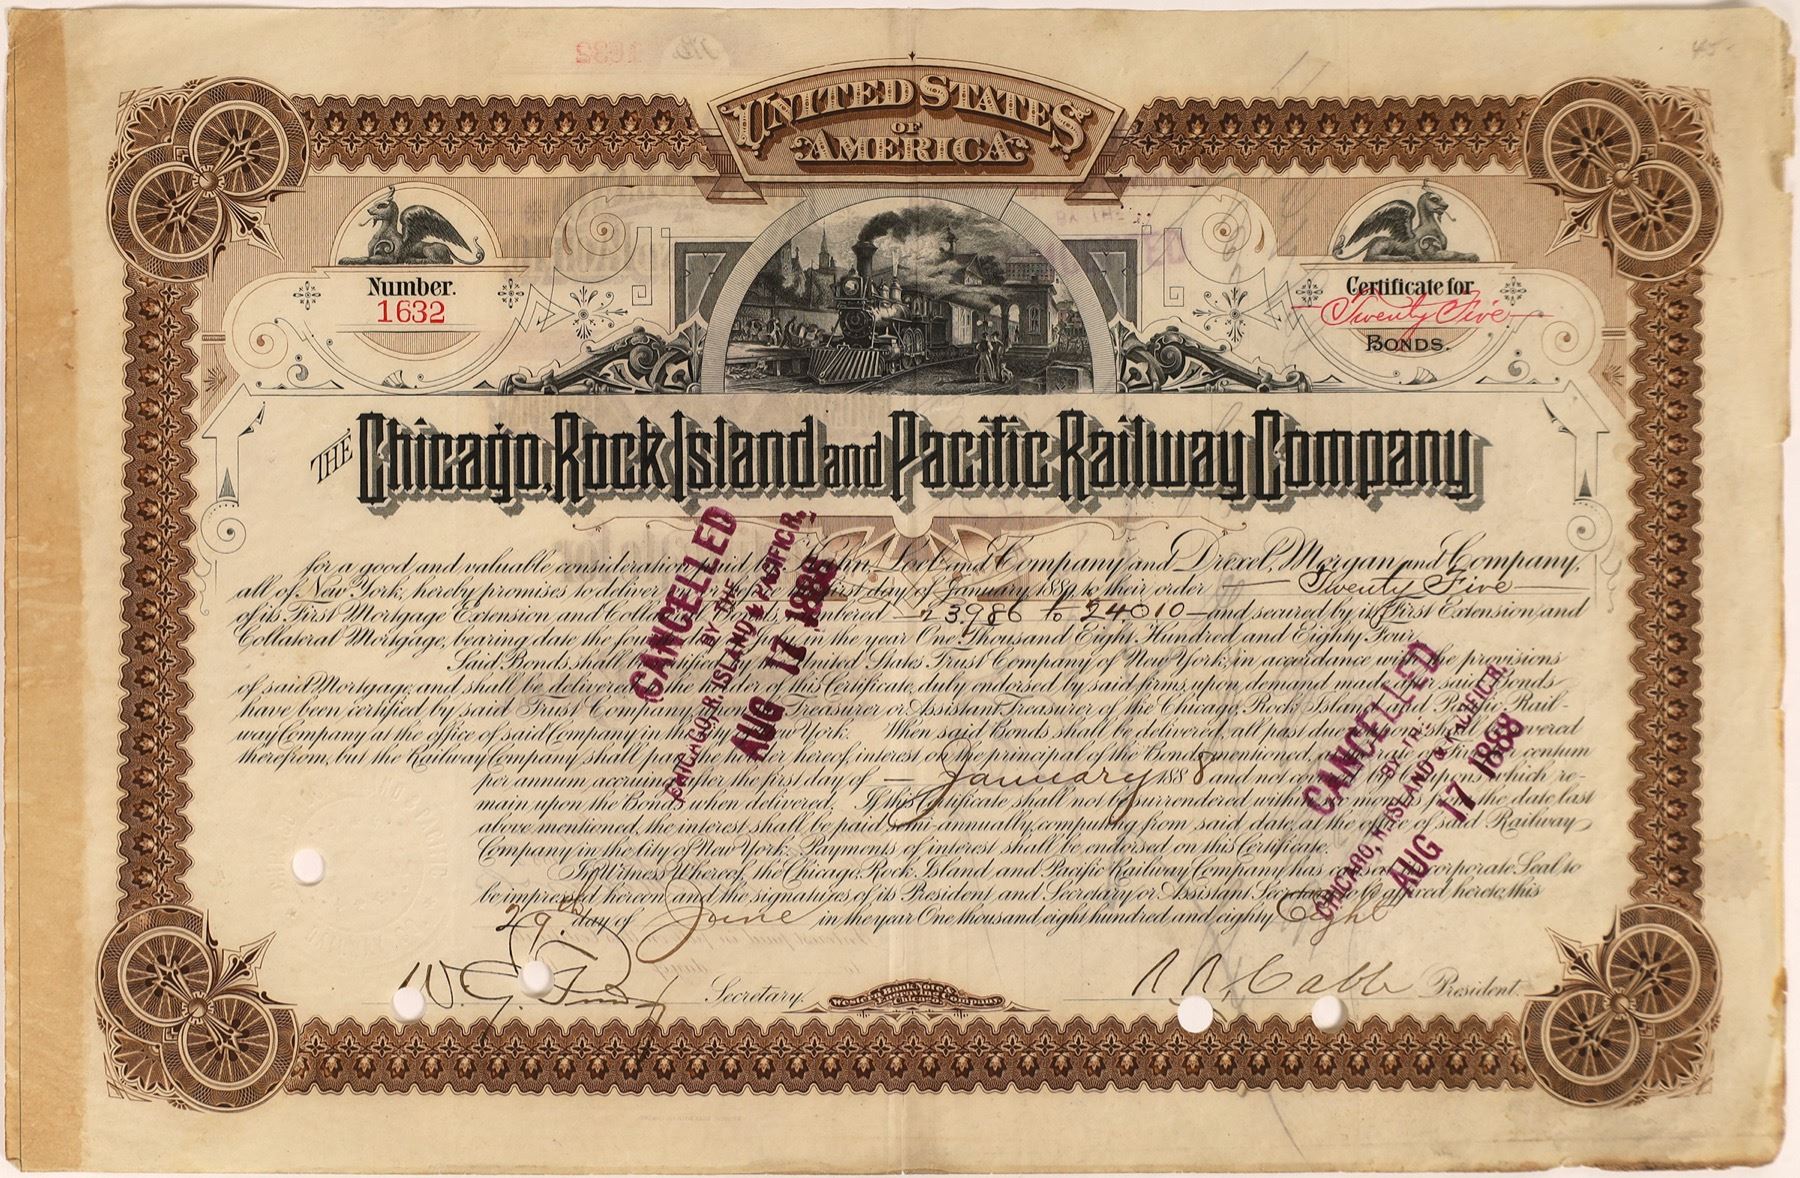 UNITED STATES
OF
AMERICA
Number.
1632
Certificate for
Twenty Five
BONDS.
THE Chicago, Rock Island and Pacific Railway Company
for a good and valuable consideration paid by Kuhn, Loeb and Company and Drexel, Morgan and Company,
all of New York, hereby promises to deliver on or before the first day of January 1889, to their order Twenty Five
of its First Mortgage Extension and Collateral Bonds, numbered 23986 to 24010 and secured by its First Extension and
Collateral Mortgage, bearing date the fourth day of July in the year One Thousand Eight Hundred and Eighty Four.
Said Bonds shall be certified by the United States Trust Company of New York, in accordance with the provisions
of said Mortgage, and shall be delivered to the holder of this Certificate, duly endorsed by said firms, upon demand made after said Bonds
have been certified by said Trust Company upon the Treasurer or Assistant Treasurer of the Chicago, Rock Island and Pacific Rail-
way Company at the office of said Company in the City of New York. When said Bonds shall be delivered, all past due coupons shall be severed
therefrom, but the Railway Company shall pay the holder hereof, interest on the principal of the Bonds mentioned, at the rate of Five per centum
per annum, accruing after the first day of January 1888 and not covered by Coupons which re-
main upon the Bonds when delivered. If this Certificate shall not be surrendered within months from the date last
above mentioned, the interest shall be paid semi-annually, computing from said date, at the office of said Railway
Company in the City of New York. Payments of interest shall be endorsed on this Certificate.
In Witness Whereof, the Chicago, Rock Island and Pacific Railway Company has caused its corporate Seal to
be impressed hereon and the signatures of its President and Secretary or Assistant Secretary to be affixed hereto, this
29th day of June in the year One thousand eight hundred and eighty Eight
Secretary.
Western Bank Note &
Engraving Company
Chicago
R. R. Cable President.
CANCELLED
BY THE
CHICAGO, R. ISLAND & PACIFIC R.
AUG 17 1888
CANCELLED
BY THE
CHICAGO, R. ISLAND & PACIFIC R.
AUG 17 1888